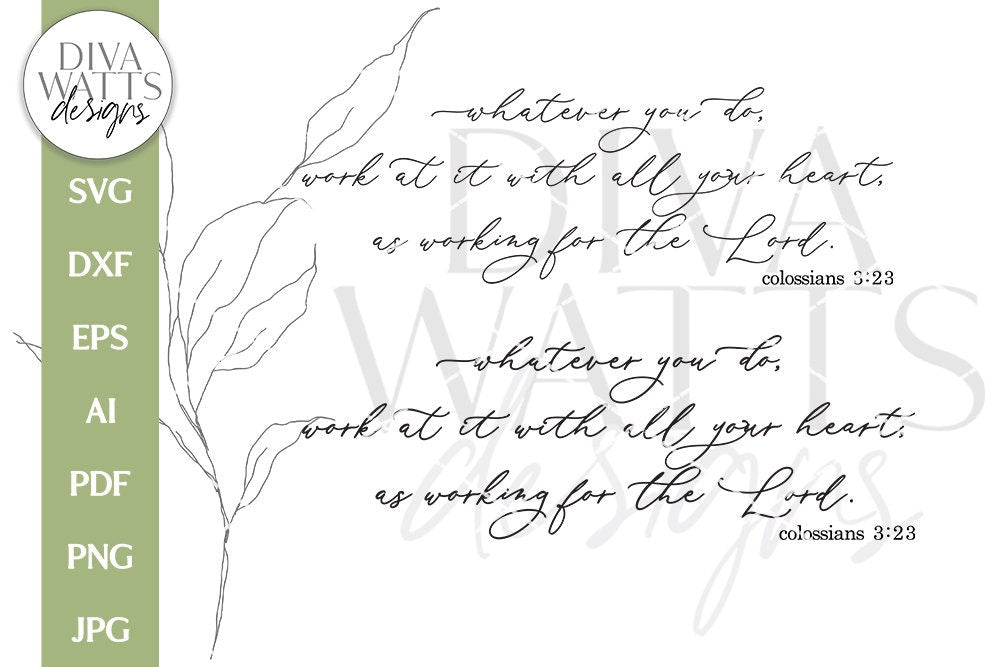 DIVA
WATTS
designs
SVG
DXF
EPS
AI
PDF
PNG
JPG
whatever you do,
work at it with all your heart,
as working for the Lord.
colossians 3:23
whatever you do,
work at it with all your heart,
as working for the Lord.
colossians 3:23
DIVA
WATTS
designs